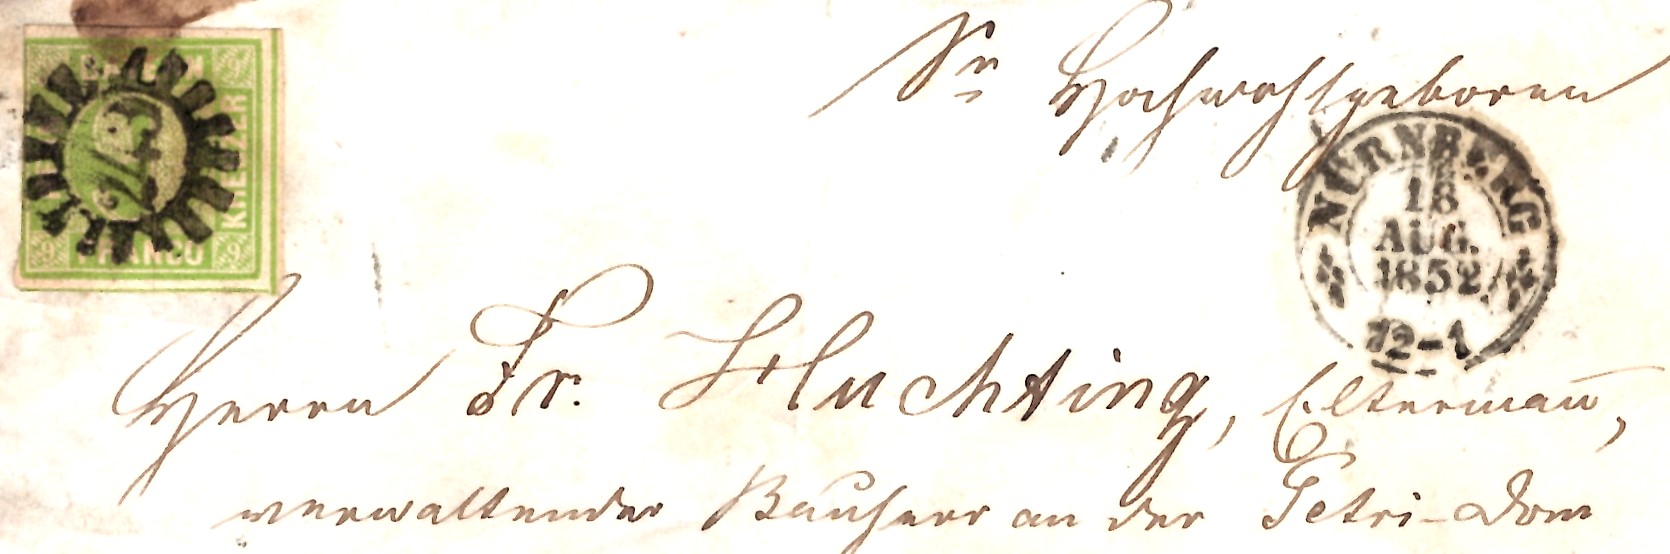 BAYERN
KREUZER
FRANCO
9
9
9
Sr Hochwohlgeboren
NÜRNBERG
18
AUG.
1852
12-1
Herrn Fr. Huchting, Eltermañ,
verwaltender Bauherr an der Petri-Dom